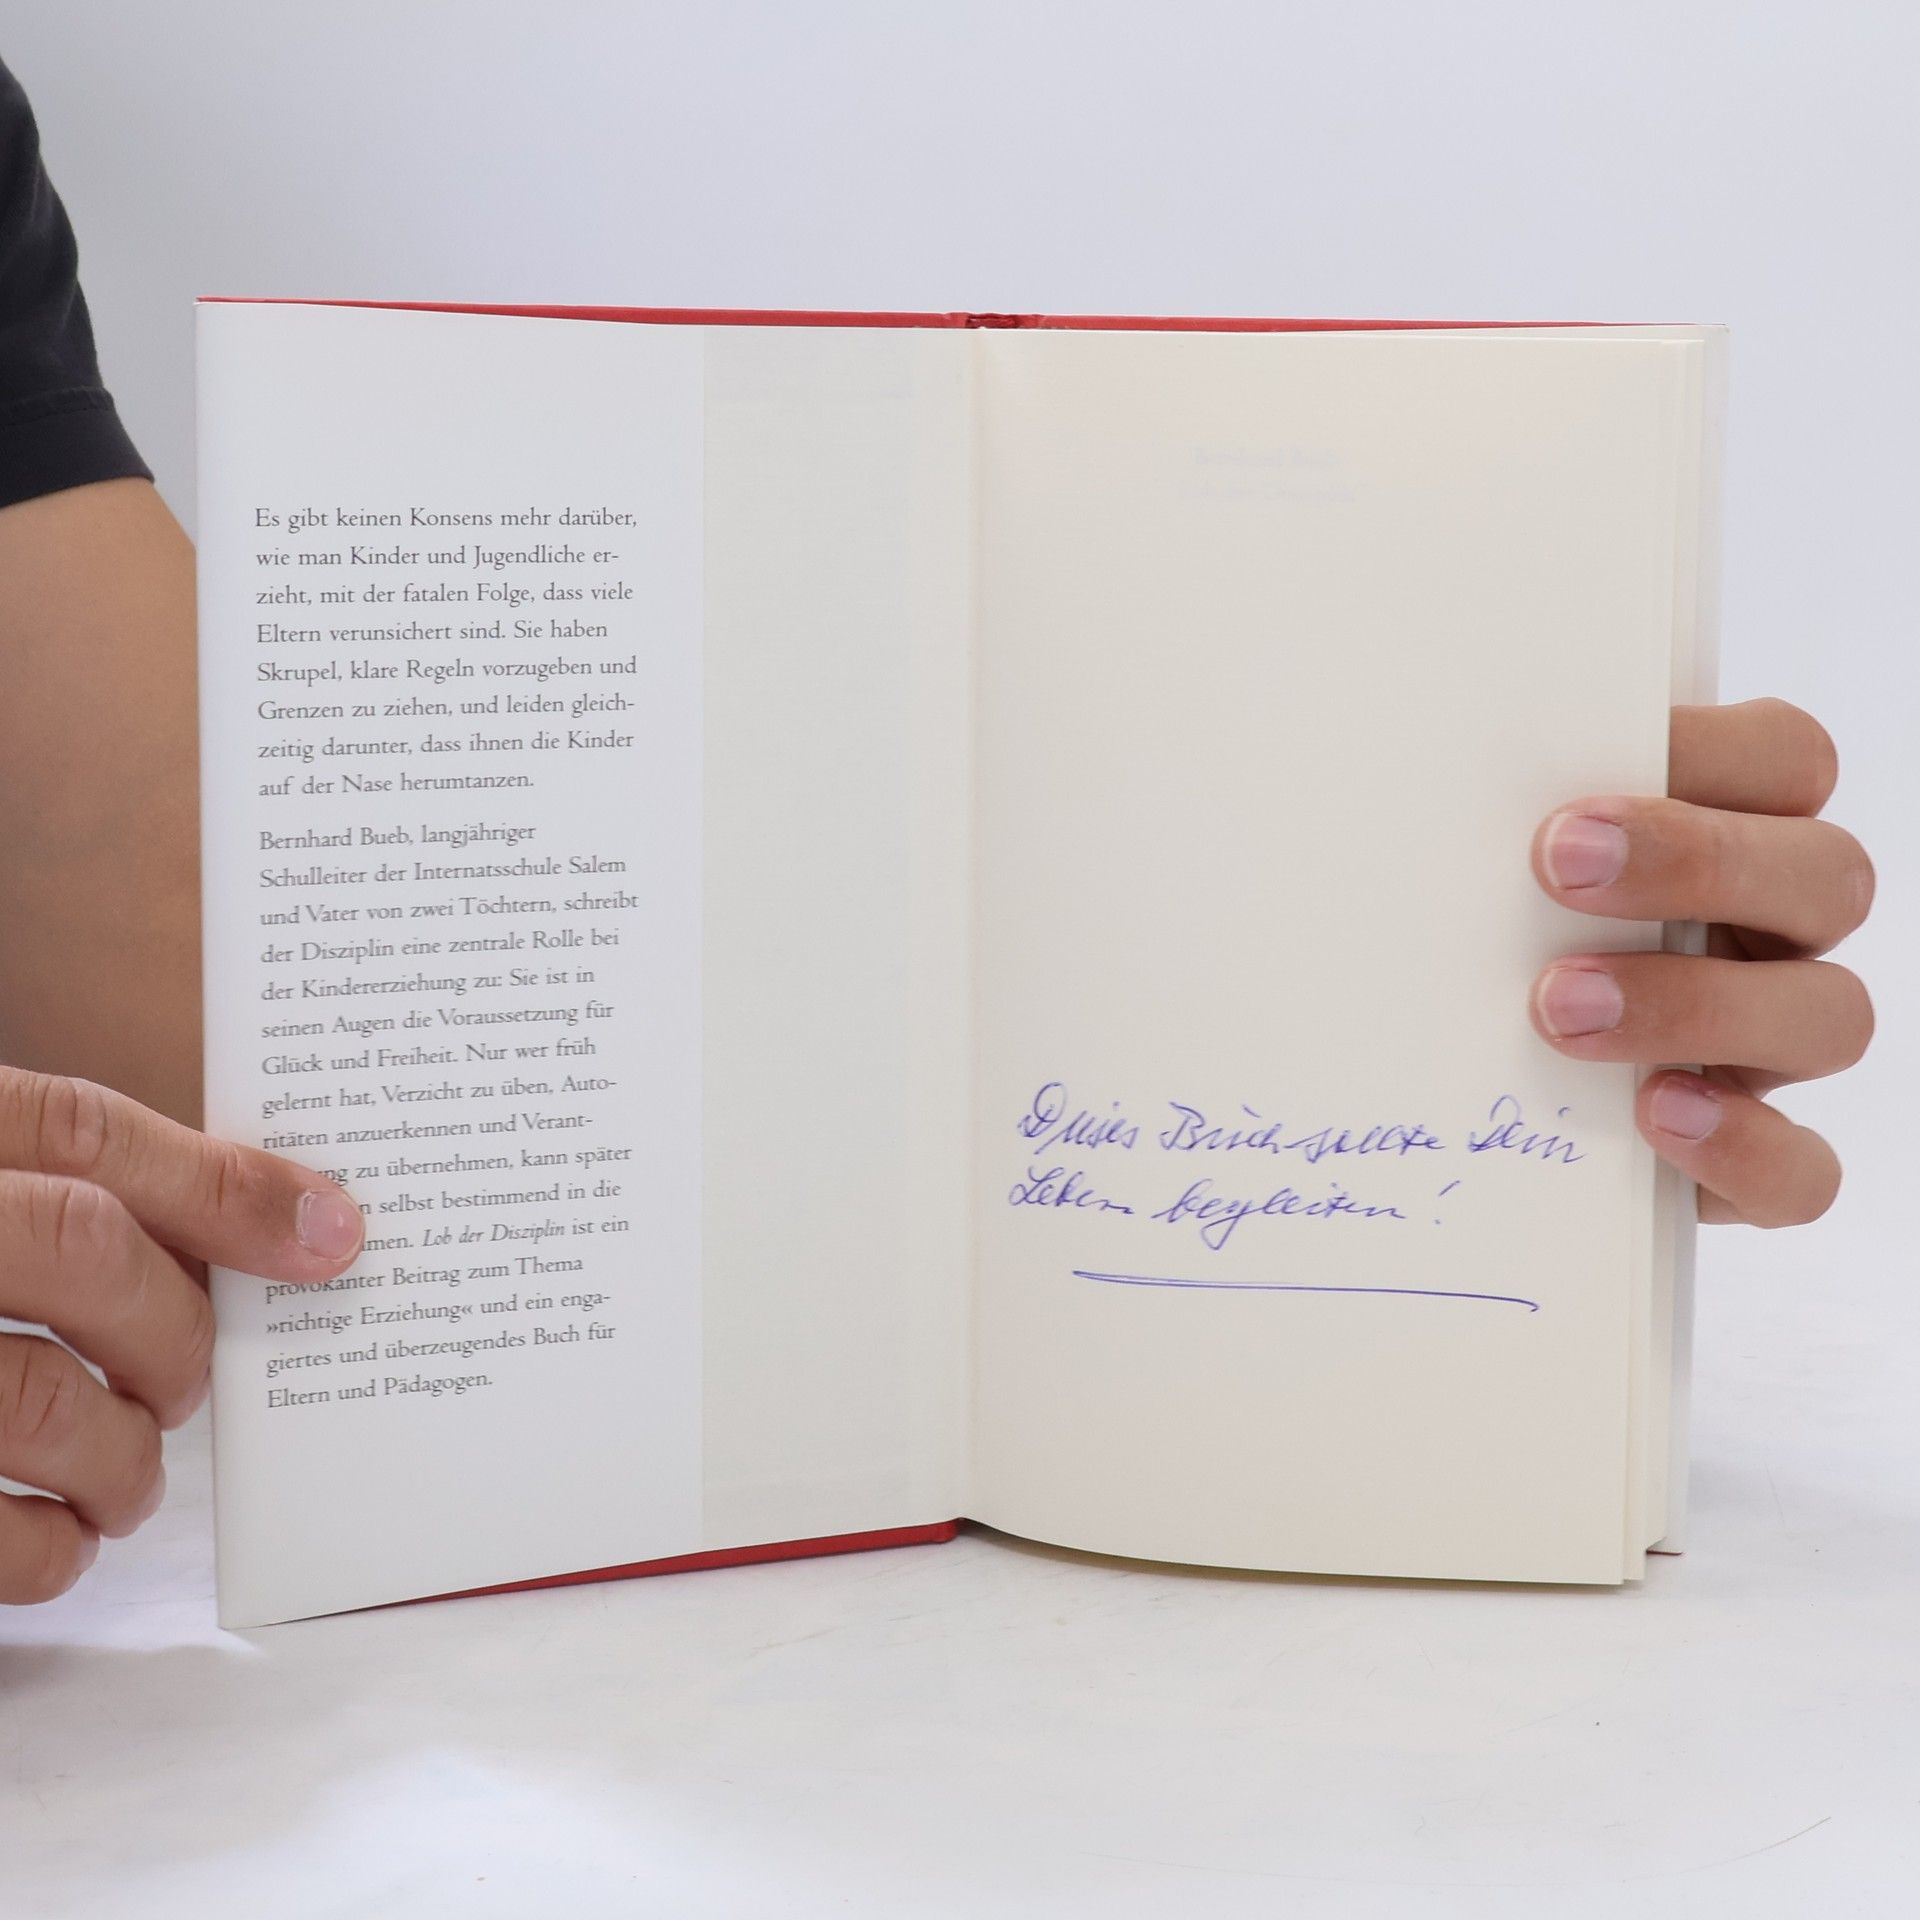 Es gibt keinen Konsens mehr darüber,
wie man Kinder und Jugendliche er-
zieht, mit der fatalen Folge, dass viele
Eltern verunsichert sind. Sie haben
Skrupel, klare Regeln vorzugeben und
Grenzen zu ziehen, und leiden gleich-
zeitig darunter, dass ihnen die Kinder
auf der Nase herumtanzen.
Bernhard Bueb, langjähriger
Schulleiter der Internatsschule Salem
und Vater von zwei Töchtern, schreibt
der Disziplin eine zentrale Rolle bei
der Kindererziehung zu: Sie ist in
seinen Augen die Voraussetzung für
Glück und Freiheit. Nur wer früh
gelernt hat, Verzicht zu üben, Auto-
ritäten anzuerkennen und Verant-
zu übernehmen, kann später
selbst bestimmend in die
Lob der Disziplin ist ein
provokanter Beitrag zum Thema
»richtige Erziehung« und ein enga-
giertes und überzeugendes Buch für
Eltern und Pädagogen.
Dieses Buch sollte Dein
Leben begleiten!